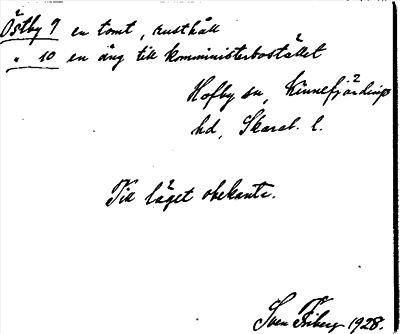 Östby 9 en tomt, rusthåll
" 10 en äng till komministerbostället
Hofby sn, Kinnefjärdings
hd, Skarab. l.
Till läget obekanta.
Sven Friberg 1928.